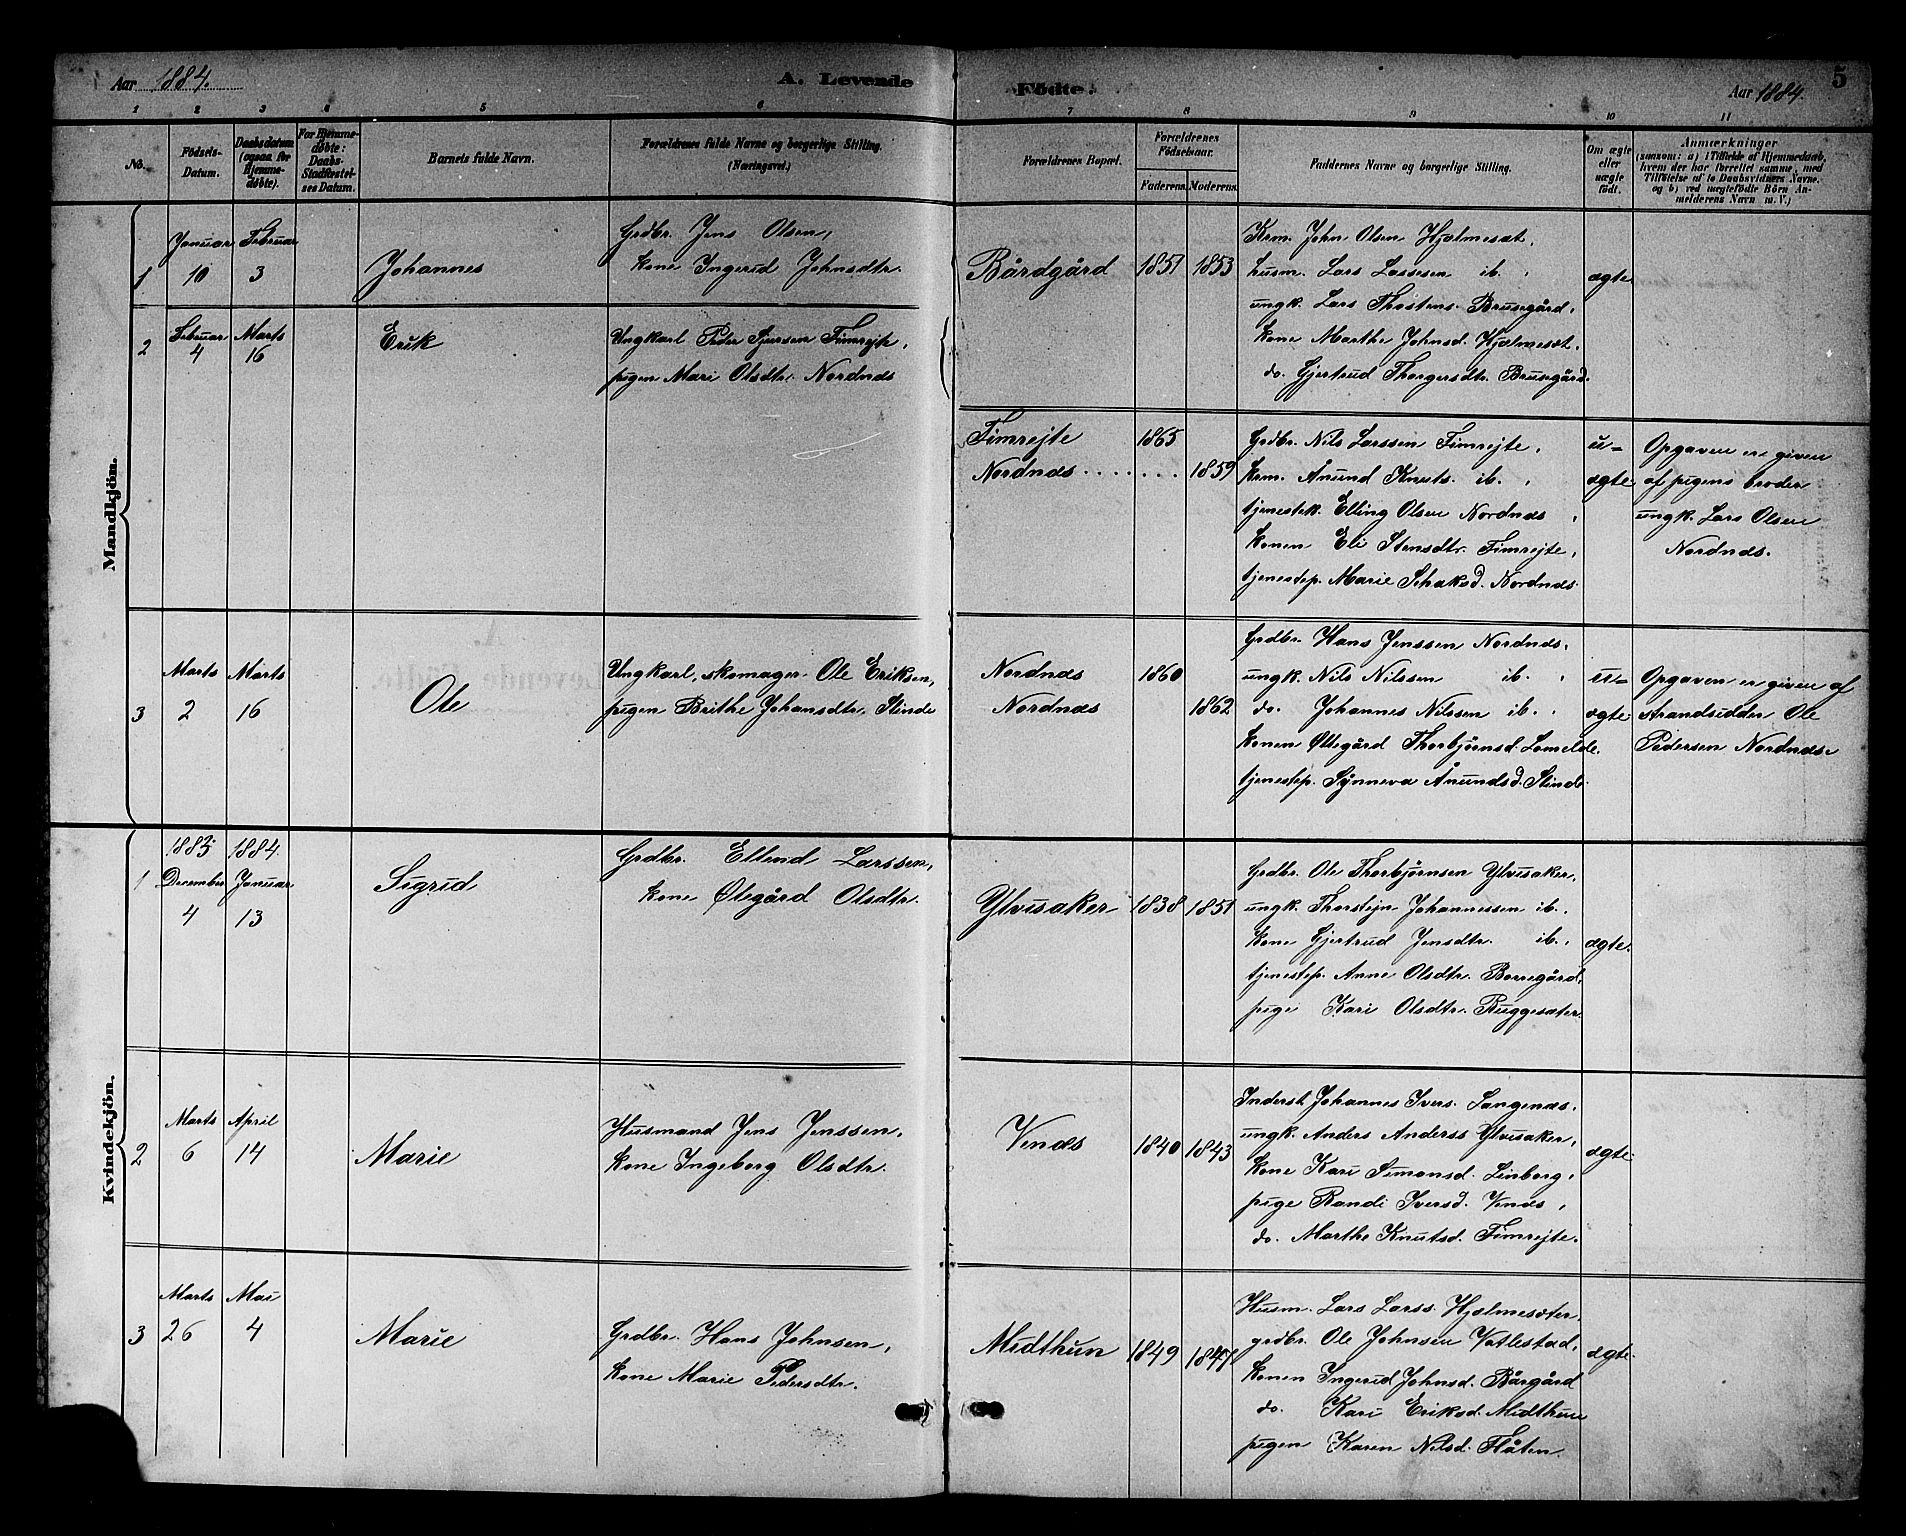 Aar 1884.
A. Levende Födte.
Aar 1884.
5
1 2 3 4 5 6 7 8 9 10 11
No.
Födsels-Datum.
Daabsdatum (ogsaa for Hjemmedøbte).
For Hjemmedøbte: Daabs-Stadfæstelses Datum.
Barnets fulde Navn.
Forældrenes fulde Navne og borgerlige Stilling. (Næringsvei.)
Forældrenes Bopæl.
Forældrenes Födselsaar.
Faderens. Moderens.
Faddernes Navne og borgerlige Stilling.
Om ægte eller uægte födt.
Anmærkninger
(saasom: a) i Tilfælde af Hjemmedaab, hvem der har forrettet samme, med Tilføielse af to Daabsvidners Navne, og b) ved uægtefødte Börn Anmelderens Navn m. V.)
Mandkjön.
1 Januar 10 Februar 3
Johannes
Grdbr. Jens Olsen,
kone Ingerid Johnsdtr.
Bårdgård 1851 1853
Krm. John Olsen Hjælmesæt,
husm. Lars Lassesen ib.,
ungk. Lars Thostens. Brusegård,
kone Marthe Johnsd. Hjælmesæt.
do. Gjertrud Thorgersdtr. Brusegård.
ægte
2 Februar 4 Marts 16
Erik
Ungkarl Peder Sjursen Fimrejte,
pigen Mari Olsdtr. Nordnæs
Fimrejte 1865
Nordnæs . . . . . . . . 1859
Grdbr. Nils Larssen Fimrejte,
krm. Ånund Knuts. ib.,
tjenestek. Elling Olsen Nordnæs,
konen Eli Stensdtr. Fimrejte,
tjenestep. Marie Schaksd. Nordnæs.
u=
ægte
Opgaven er given
af pigens broder
ungk. Lars Olsen
Nordnæs.
3 Marts 2 Marts 16
Ole
Ungkarl, skomager Ole Eriksen,
pigen Brithe Johansdtr. Slinde
Nordnæs 1860
Nordnæs 1862
Grdbr. Hans Jenssen Nordnæs.
ungk. Nils Nilssen ib.,
do. Johannes Nilssen ib.,
konen Øllegård Thorbjörnsd. Lomelde.
tjenestep. Synneva Ånundsd. Slinde.
u=
ægte
Opgaven er given af
strandsidder Ole
Pedersen Nordnæs.
Kvindekjön.
1883 1884.
1 December 4 Januar 13
Sigrid
Grdbr. Ellend Larssen,
kone Ølegård Olsdtr.
Ylvisaker 1838 1851
Grdbr. Ole Thorbjörnsen Ylvisaker,
ungk. Thorstejn Johannessen ib.,
kone Gjertrud Jensdtr. ib.,
tjenestep. Anne Olsdtr. Borregård,
pige Kari Olsdtr. Ruggesæter.
ægte.
2 Marts 6 April 14
Marie
Husmand Jens Jenssen,
kone Ingeborg Olsdtr.
Venæs 1840 1843
Inderst Johannes Ivers. Langenæs.
ungk. Anders Anderss Ylvisaker,
kone Kari Simonsd. Linborg,
pige Randi Iversd. Venæs,
do. Marthe Knutsd. Fimrejte.
ægte.
3 Marts 26 Mai 4
Marie
Grdbr. Hans Johnsen,
kone Marie Pedersdtr.
Midthun 1849 1847
Husm. Lars Larss. Hjælmesæter
grdbr. Ole Johnsen Vatlestad,
konen Ingerid Johnsd. Bårgård
do. Kari Eriksd. Midthun
pigen Karen Nilsd. Flåten.
ægte.